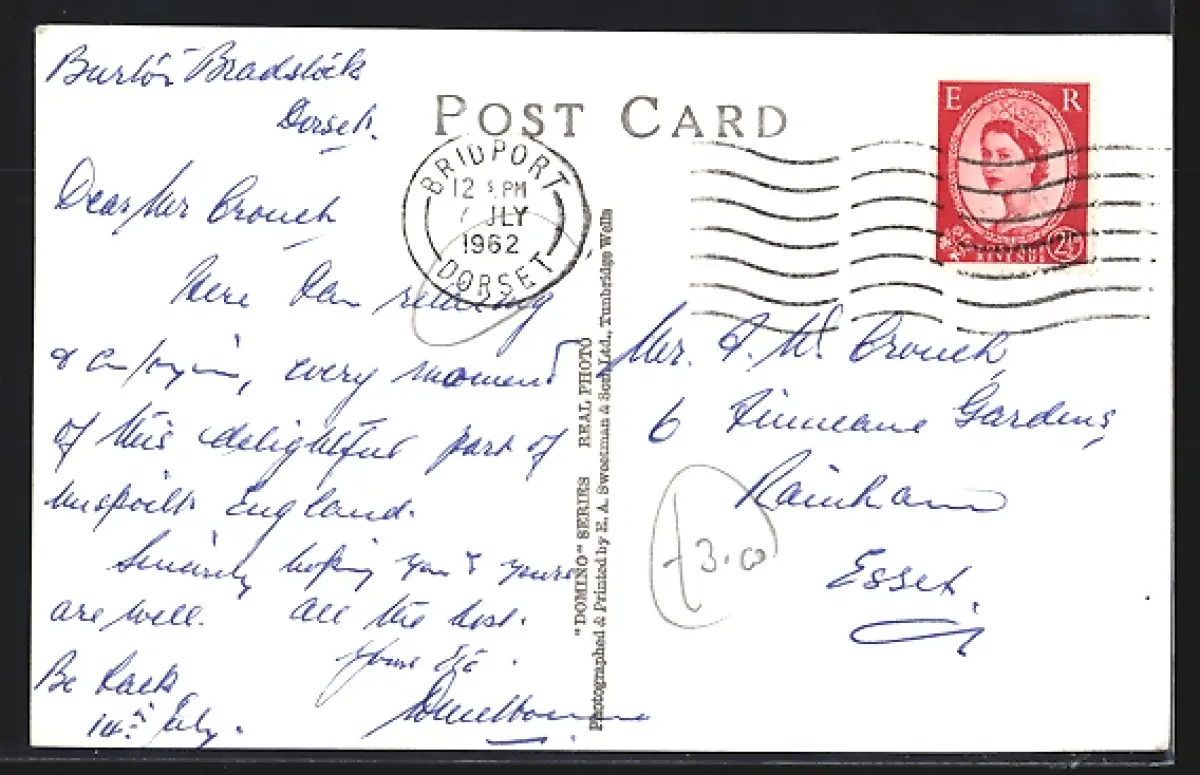 Burton Bradstock
Dorset.
Dear Mr Crouch
Here I am relaxing
& enjoying, every moment
of this delightful part of
unspoilt England.
Sincerely hoping you & yours
are well. All the best.
Yours etc.
Be back
14th July.
POST CARD
BRIDPORT
12 PM
JLY
1962
DORSET
E R
REVENUE
2½
"DOMINO" SERIES REAL PHOTO
Photographed & Printed by E. A. Sweetman & Son Ltd., Tunbridge Wells
Mr. W. Crouch,
6 Finneane Gardens,
Rainham
Essex.
£3.00